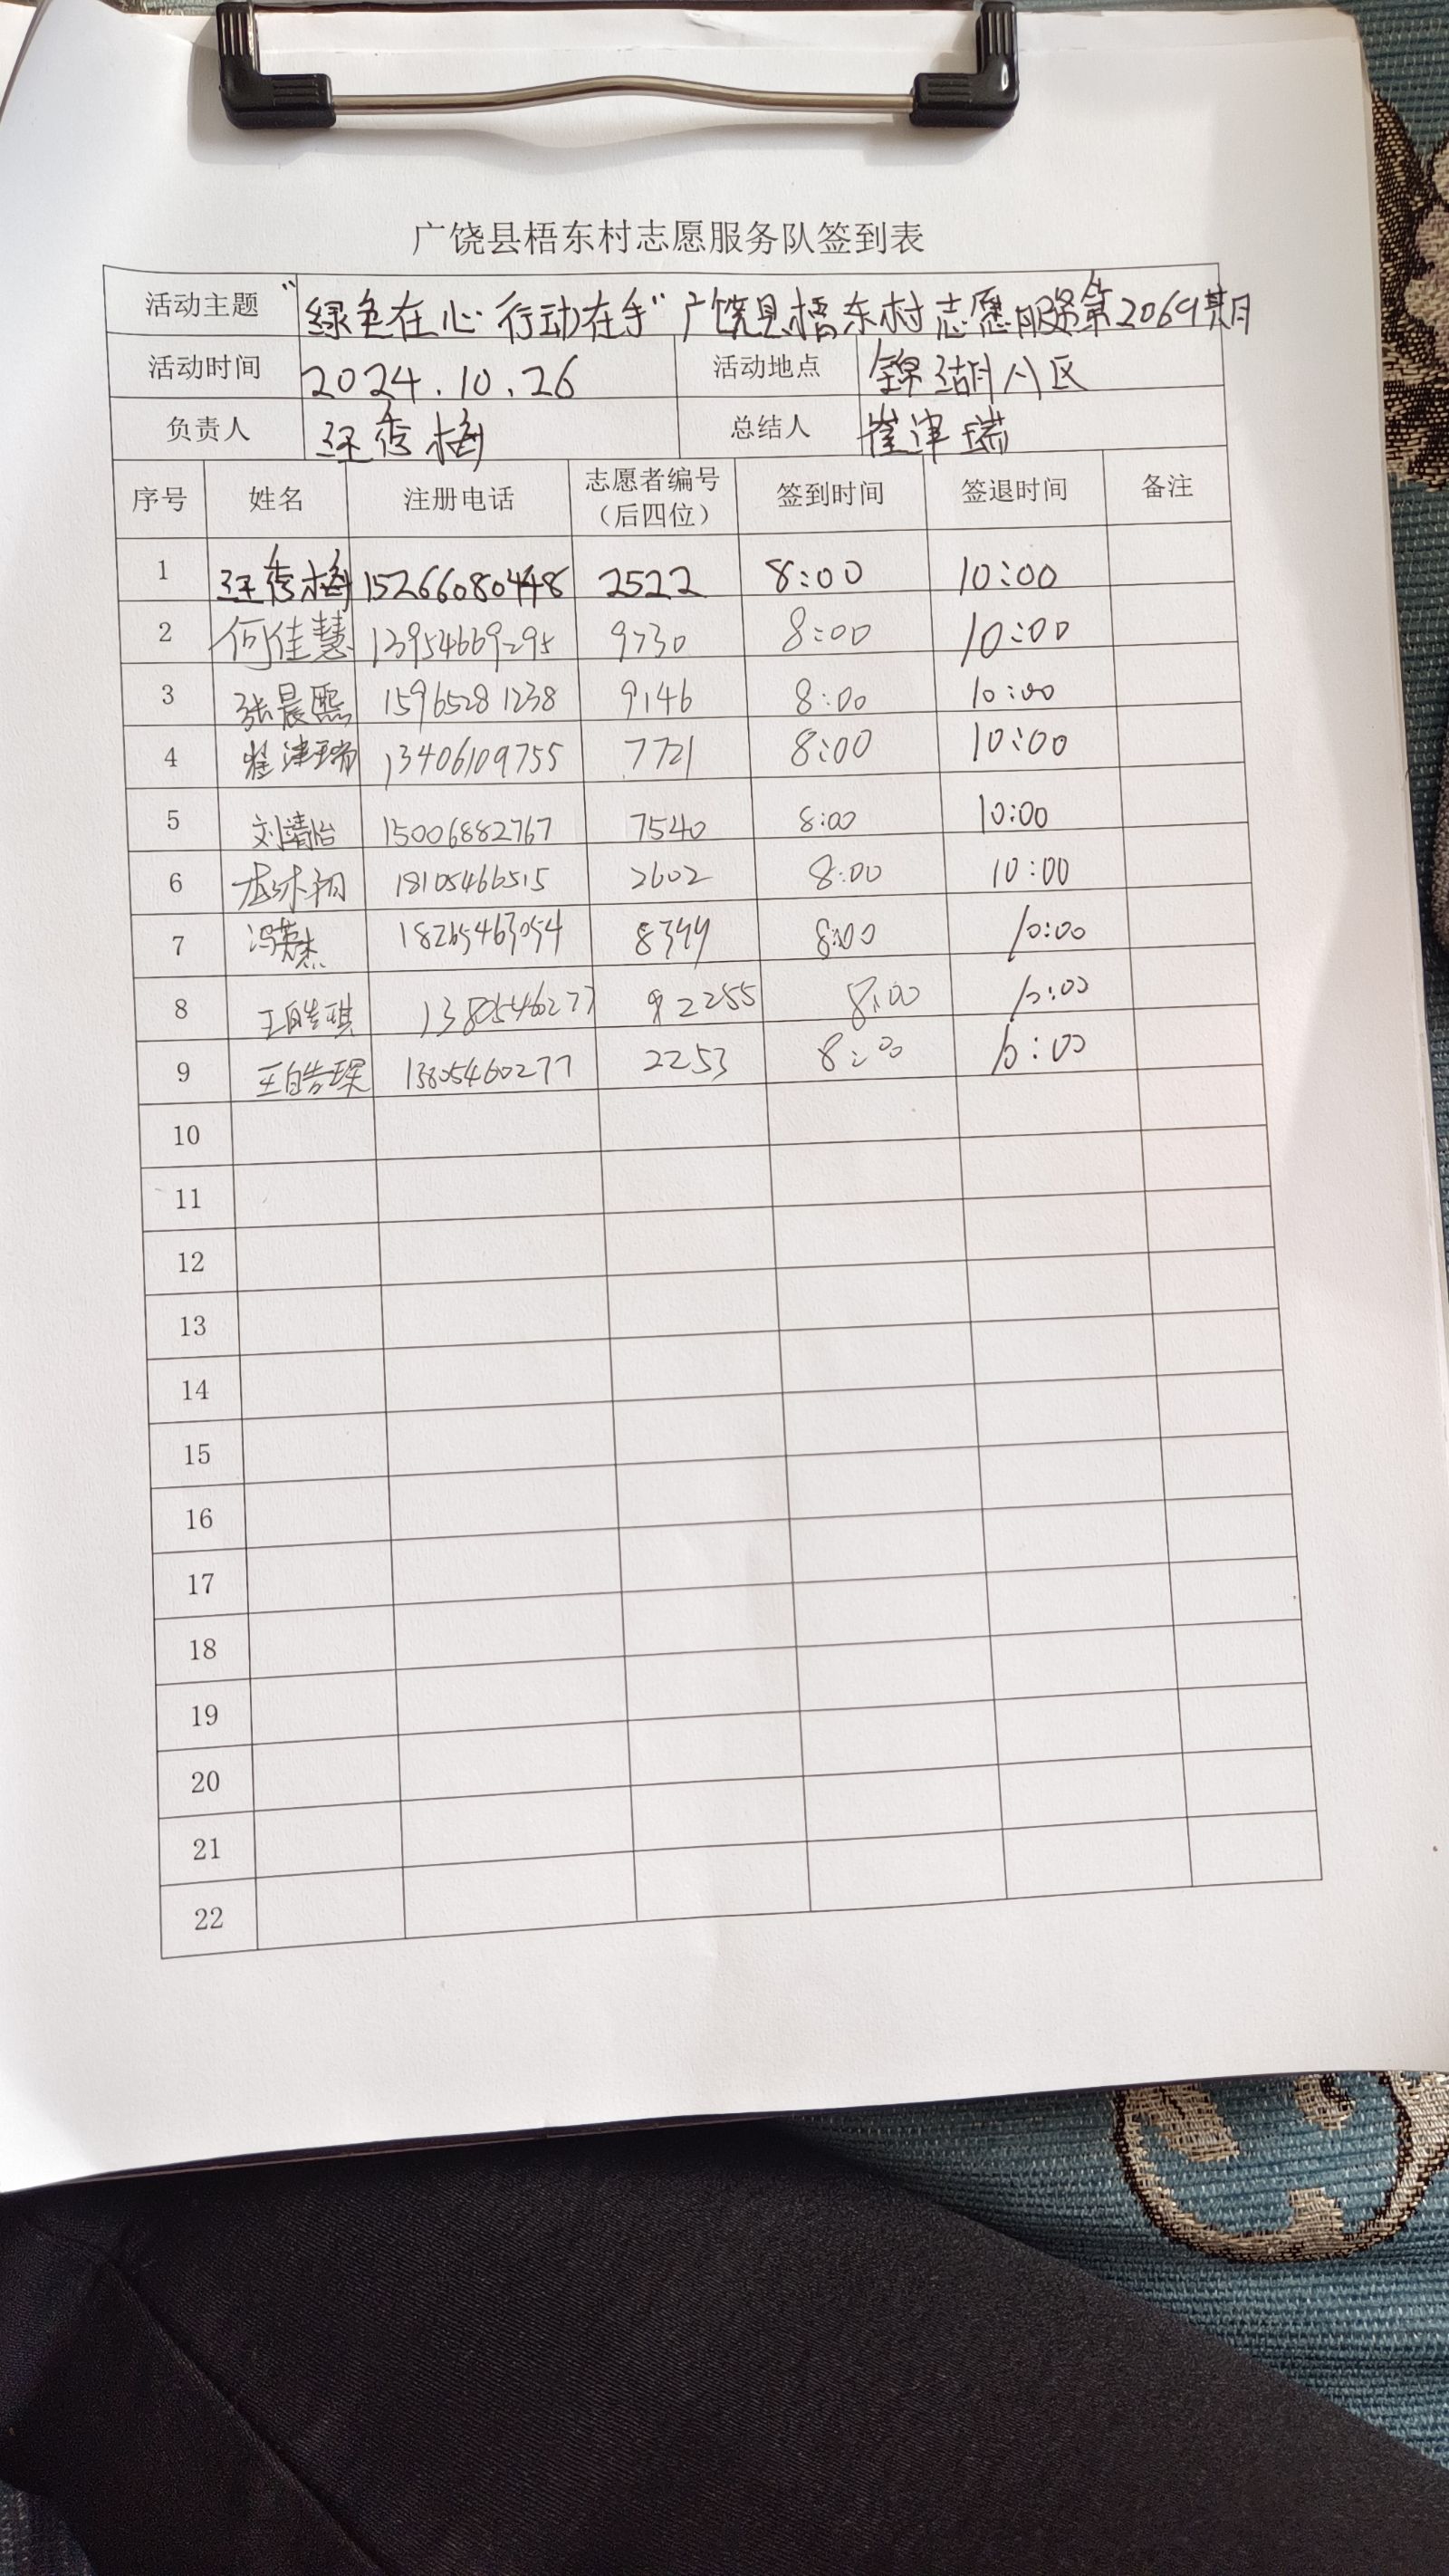 广饶县梧东村志愿服务队签到表
活动主题 “绿色在心 行动在手”广饶县梧东村志愿服务第2069期
活动时间 2024.10.26 活动地点 锦湖小区
负责人 秀梅 总结人 崔津瑞
序号 姓名 注册电话 志愿者编号（后四位） 签到时间 签退时间 备注
1 秀梅 15266080448 2522 8:00 10:00
2 何佳慧 13954669295 9730 8:00 10:00
3 张晨熙 15965281238 9146 8:00 10:00
4 崔津瑞 13406109755 7721 8:00 10:00
5 刘靖怡 15006882767 7540 8:00 10:00
6 18105466515 2602 8:00 10:00
7 冯英杰 18265463054 8:00 10:00
8 王皓琪 13805460277 2255 8:00 10:00
9 王皓琛 13805460277 2253 8:00 10:00
10
11
12
13
14
15
16
17
18
19
20
21
22